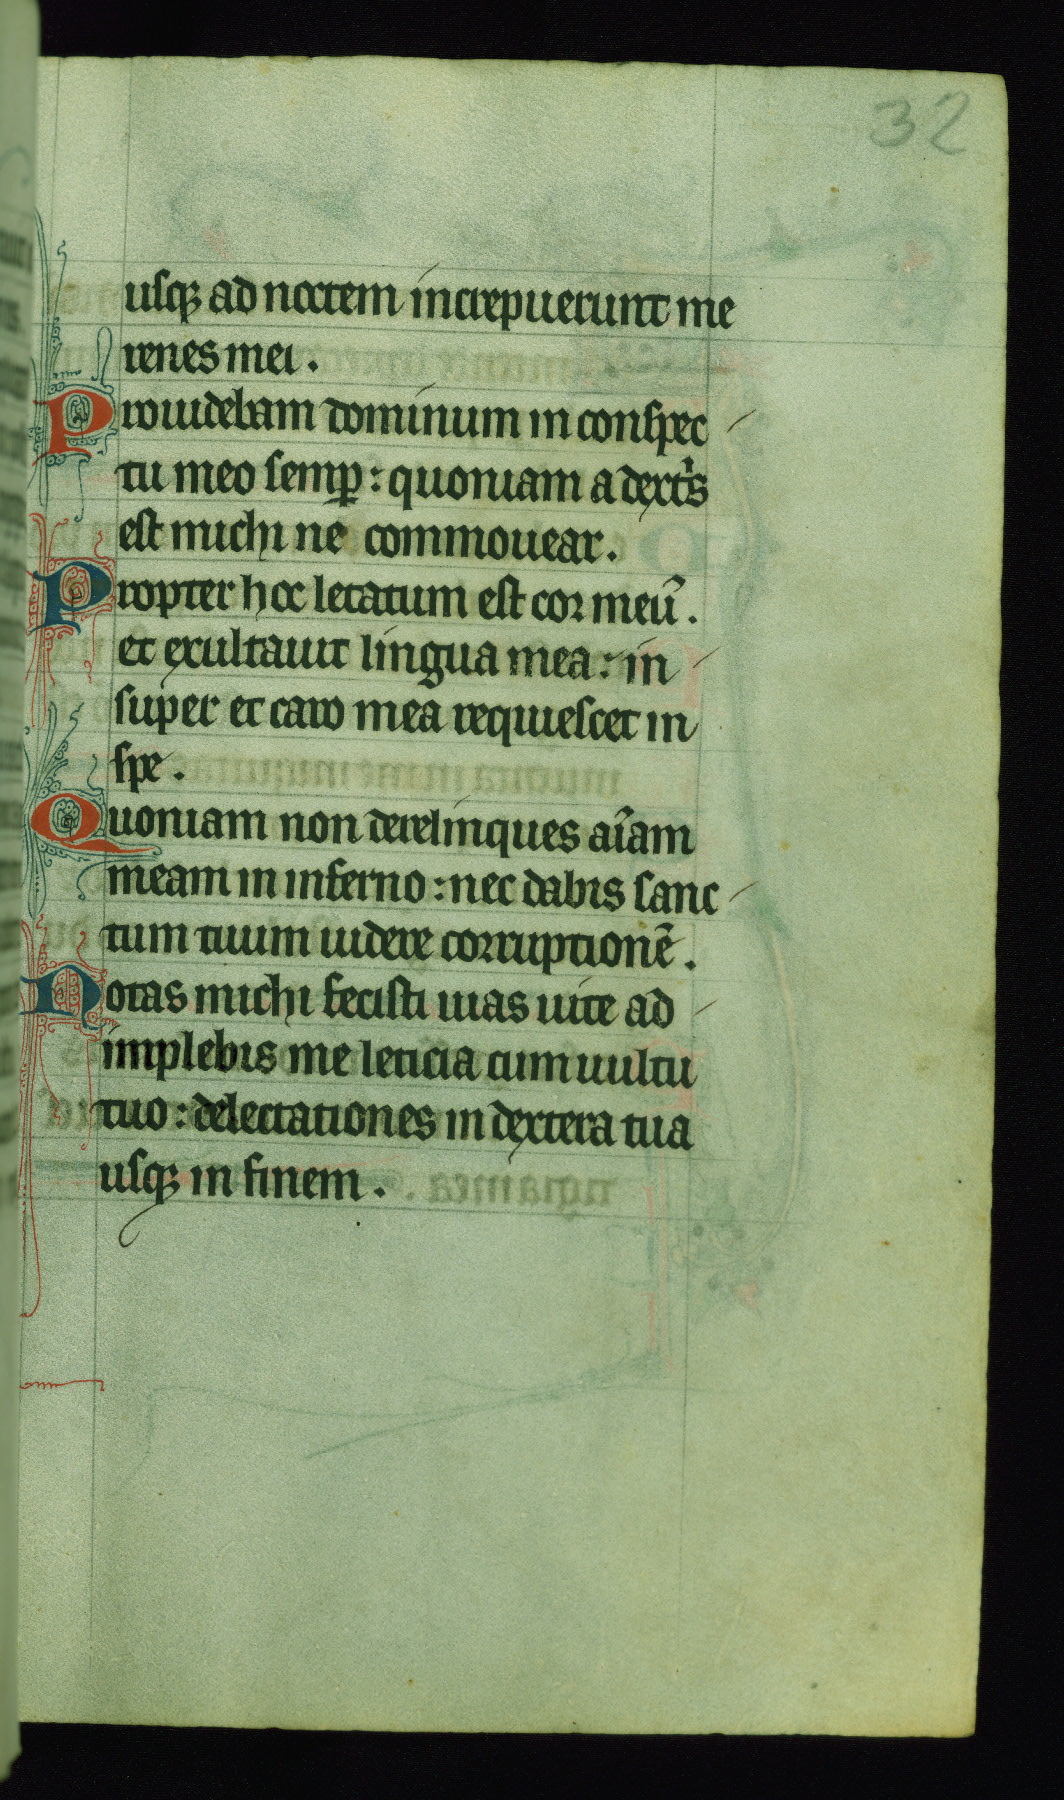 32
usqꝫ ad noctem increpuerunt me
renes mei.
Prouidebam dominum in conspec
tu meo semꝑ: quoniam a dextˢis
est michi ne commouear.
Propter hoc letatum est cor meū.
et exultauit lingua mea: in
super et caro mea requiescet in
spe.
Quoniam non derelinques aīam
meam in inferno: nec dabis sanc
tum tuum uidere corruptionē.
Notas michi fecisti uias uite ad
implebis me leticia cum uultu
tuo: delectationes in dextera tua
usqꝫ in finem.